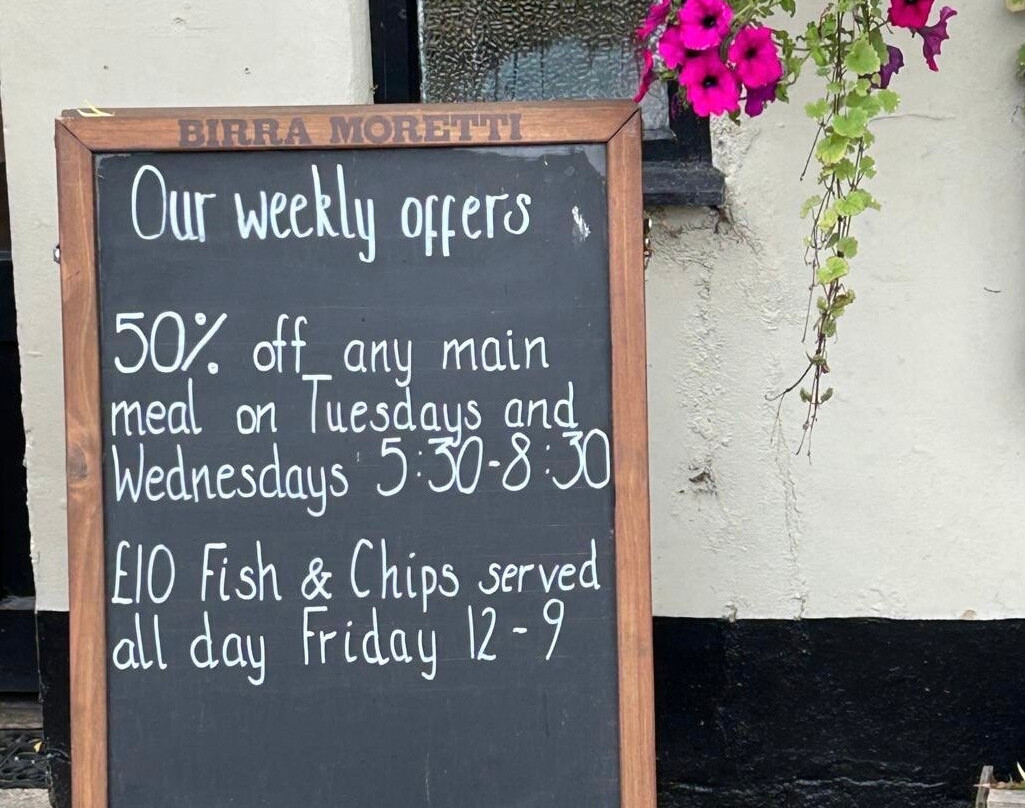 BIRRA MORETTI
Our weekly offers
50% off any main
meal on Tuesdays and
Wednesdays 5:30-8:30
£10 Fish & Chips served
all day Friday 12-9